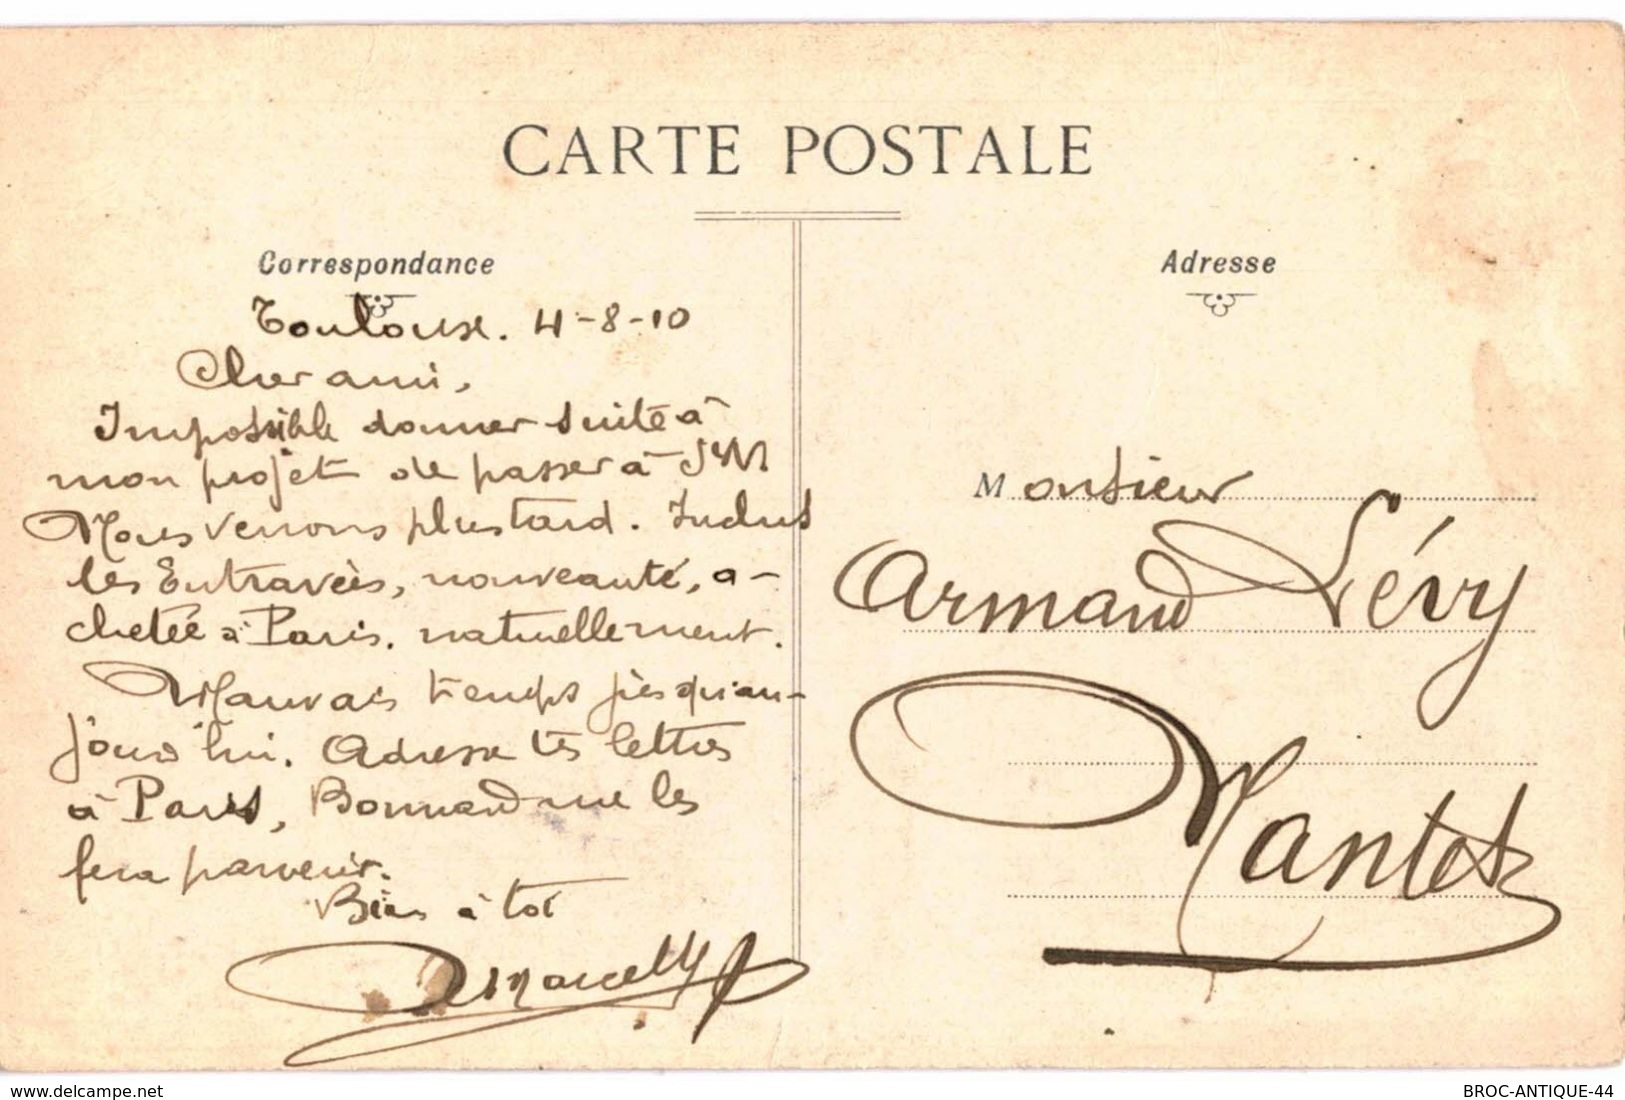 CARTE POSTALE
Correspondance
Toulouse. 4-8-10
Cher ami,
Impossible donner suite à
mon projet de passer à
Nous verrons plus tard. Inclus
les Entravées, nouveauté, a-
chetée à Paris. naturellement.
Mauvais temps jusqu'au-
jourd'hui. Adresse tes lettres
à Paris, Bonnard me les
fera parvenir.
Bien à toi
Marcel
Adresse
Monsieur
Armand Lévy
Nantes
delcampe.net
BROC-ANTIQUE-44